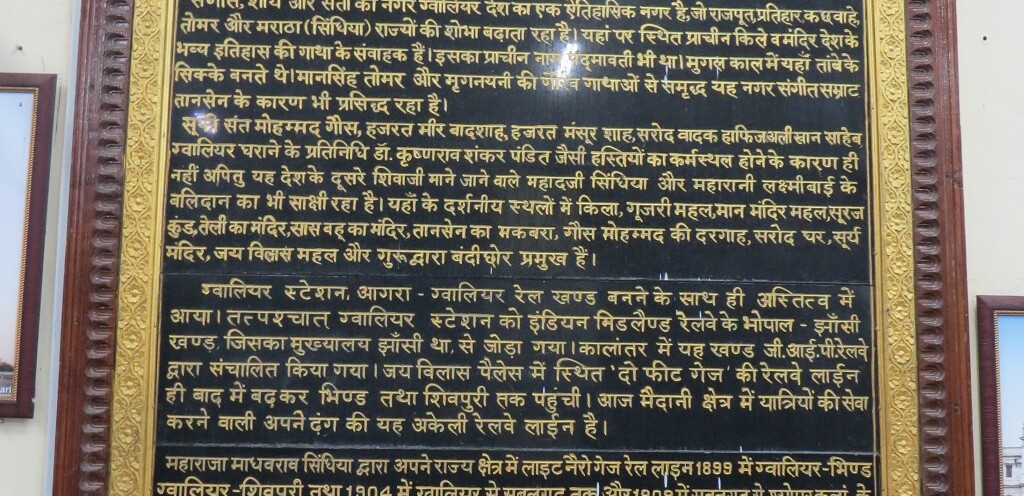 संगीत, शौर्य और संतों का नगर ग्वालियर देश का एक ऐतिहासिक नगर है,जो राजपूत,प्रतिहार,कछवाहे,
तोमर और मराठा(सिंधिया) राज्यों की शोभा बढ़ाता रहा है। यहां पर स्थित प्राचीन किले व मंदिर देश के
भव्य इतिहास की गाथा के संवाहक हैं। इसका प्राचीन नाम पद्मावती भी था। मुगल काल में यहाँ तांबे के
सिक्के बनते थे।मानसिंह तोमर और मृगनयनी की गौरव गाथाओं से समृद्ध यह नगर संगीत सम्राट
तानसेन के कारण भी प्रसिद्ध रहा है।
सूफी संत मोहम्मद गौस, हजरत मीर बादशाह, हजरत मंसूर शाह, सरोद वादक हाफिजअलीखान साहेब
ग्वालियर घराने के प्रतिनिधि डॉ. कृष्णराव शंकर पंडित जैसी हस्तियों का कर्मस्थल होने के कारण ही
नहीं अपितु यह देश के दूसरे शिवाजी माने जाने वाले महादजी सिंधिया और महारानी लक्ष्मीबाई के
बलिदान का भी साक्षी रहा है। यहाँ के दर्शनीय स्थलों में किला, गूजरी महल,मान मंदिर महल,सूरज
कुंड,तेली का मंदिर,सास वहू का मंदिर, तानसेन का मकबरा, गौस मोहम्मद की दरगाह, सरोद घर, सूर्य
मंदिर, जय विलास महल और गुरूद्वारा बंदीछोर प्रमुख हैं।
ग्वालियर स्टेशन, आगरा - ग्वालियर रेल खण्ड बनने के साथ ही अस्तित्व में
आया। तत्पश्चात् ग्वालियर स्टेशन को इंडियन मिडलैण्ड रेलवे के भोपाल - झाँसी
खण्ड, जिसका मुख्यालय झाँसी था, से जोड़ा गया। कालांतर में यह खण्ड जी.आई.पी.रेलवे
द्वारा संचालित किया गया। जय विलास पैलेस में स्थित 'दो फीट गेज' की रेलवे लाईन
ही बाद में बढ़कर भिण्ड तथा शिवपुरी तक पहुंची। आज मैदानी क्षेत्र में यात्रियों की सेवा
करने वाली अपने ढंग की यह अकेली रेलवे लाईन है।
महाराजा माधवराव सिंधिया द्वारा अपने राज्य क्षेत्र में लाइट नैरो गेज रेल लाइन 1899 में ग्वालियर-भिण्ड
ग्वालियर-शिवपुरी तथा 1904 में ग्वालियर से सबलगढ़ तक और 1909 में सबलगढ़ से श्योपुर कलां के